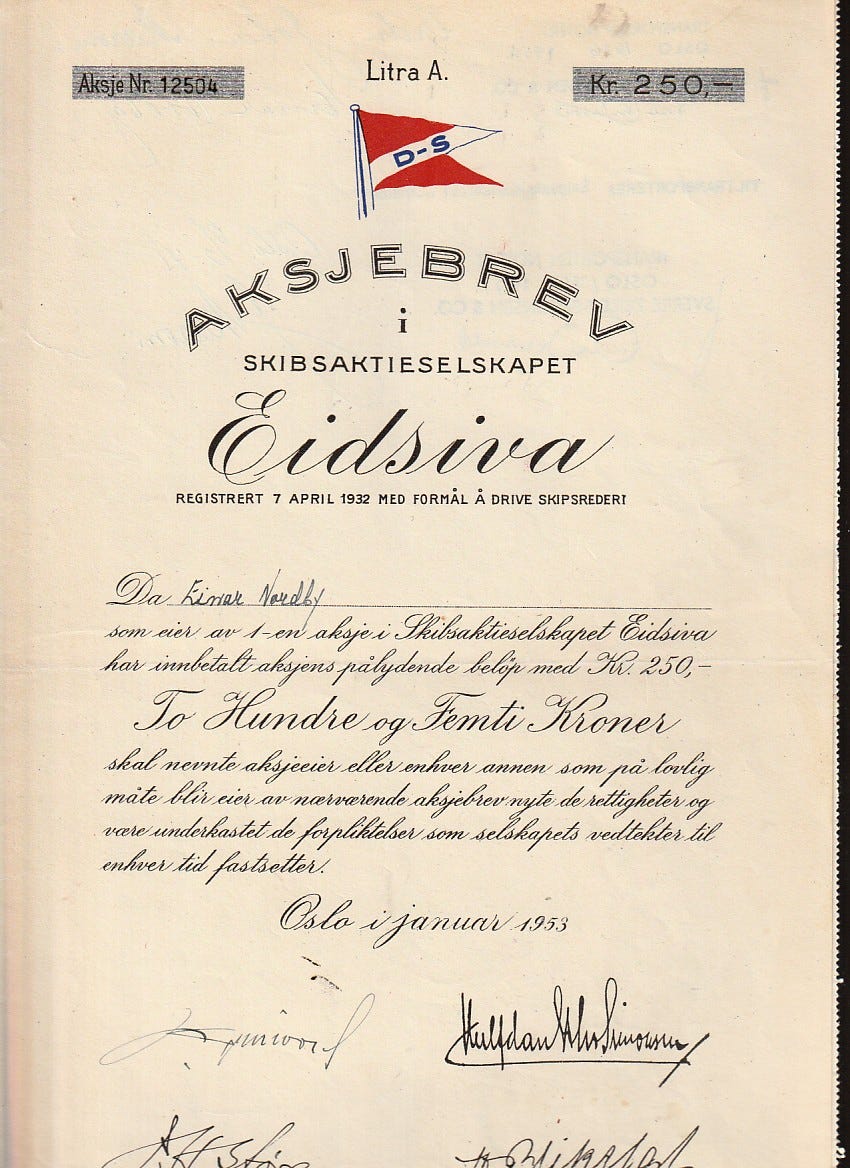 Litra A.
Aksje Nr. 12504
Kr. 250,—
D-S
AKSJEBREV
i
SKIBSAKTIESELSKAPET
Eidsiva
REGISTRERT 7 APRIL 1932 MED FORMÅL Å DRIVE SKIPSREDERI
Da Einar Nordby
som eier av 1-en aksje i Skibsaktieselskapet Eidsiva
har innbetalt aksjens pålydende beløp med Kr. 250,–
To Hundre og Femti Kroner
skal nevnte aksjeeier eller enhver annen som på lovlig
måte blir eier av nærværende aksjebrev nyte de rettigheter og
være underkastet de forpliktelser som selskapets vedtekter til
enhver tid fastsetter.
Oslo i januar 1953
Halfdan Simonsen